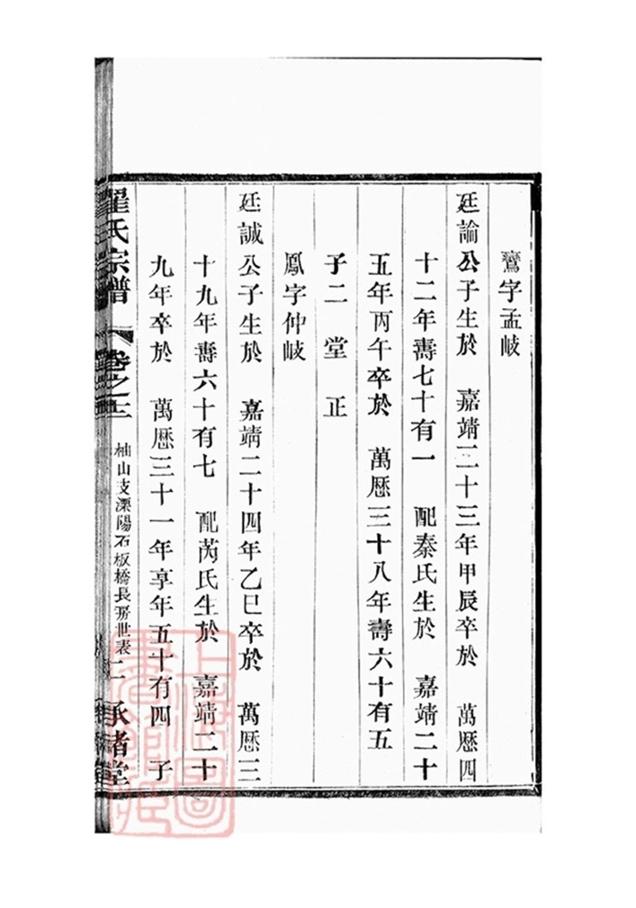 鸞字孟岐
廷論公子生於 嘉靖二十三年甲辰卒於 萬厯四
十二年壽七十有一 配秦氏生於 嘉靖二十
五年丙午卒於 萬厯三十八年壽六十有五
子二 堂 正
鳳字仲岐
廷誠公子生於 嘉靖二十四年乙巳卒於 萬厯三
十九年壽六十有七 配芮氏生於 嘉靖二十
九年卒於 萬厯三十一年享年五十有四 子
氏宗譜 卷之十二 柚山支溧陽石板橋長房世表 二 承渚堂
上海圖書館藏